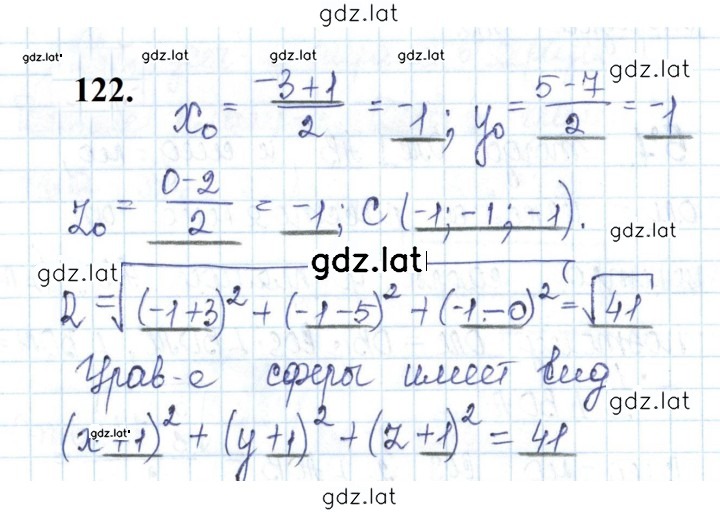 gdz.lat
gdz.lat gdz.lat gdz.lat gdz.lat
122. x₀ = (-3+1)/2 = -1; y₀ = (5-7)/2 = -1
z₀ = (0-2)/2 = -1; C (-1; -1; -1).
gdz.lat
gdz.lat gdz.lat
R = √((-1+3)² + (-1-5)² + (-1-0)²) = √41
Урав-е сферы имеет вид
gdz.lat
gdz.lat
(x+1)² + (y+1)² + (z+1)² = 41
gdz.lat